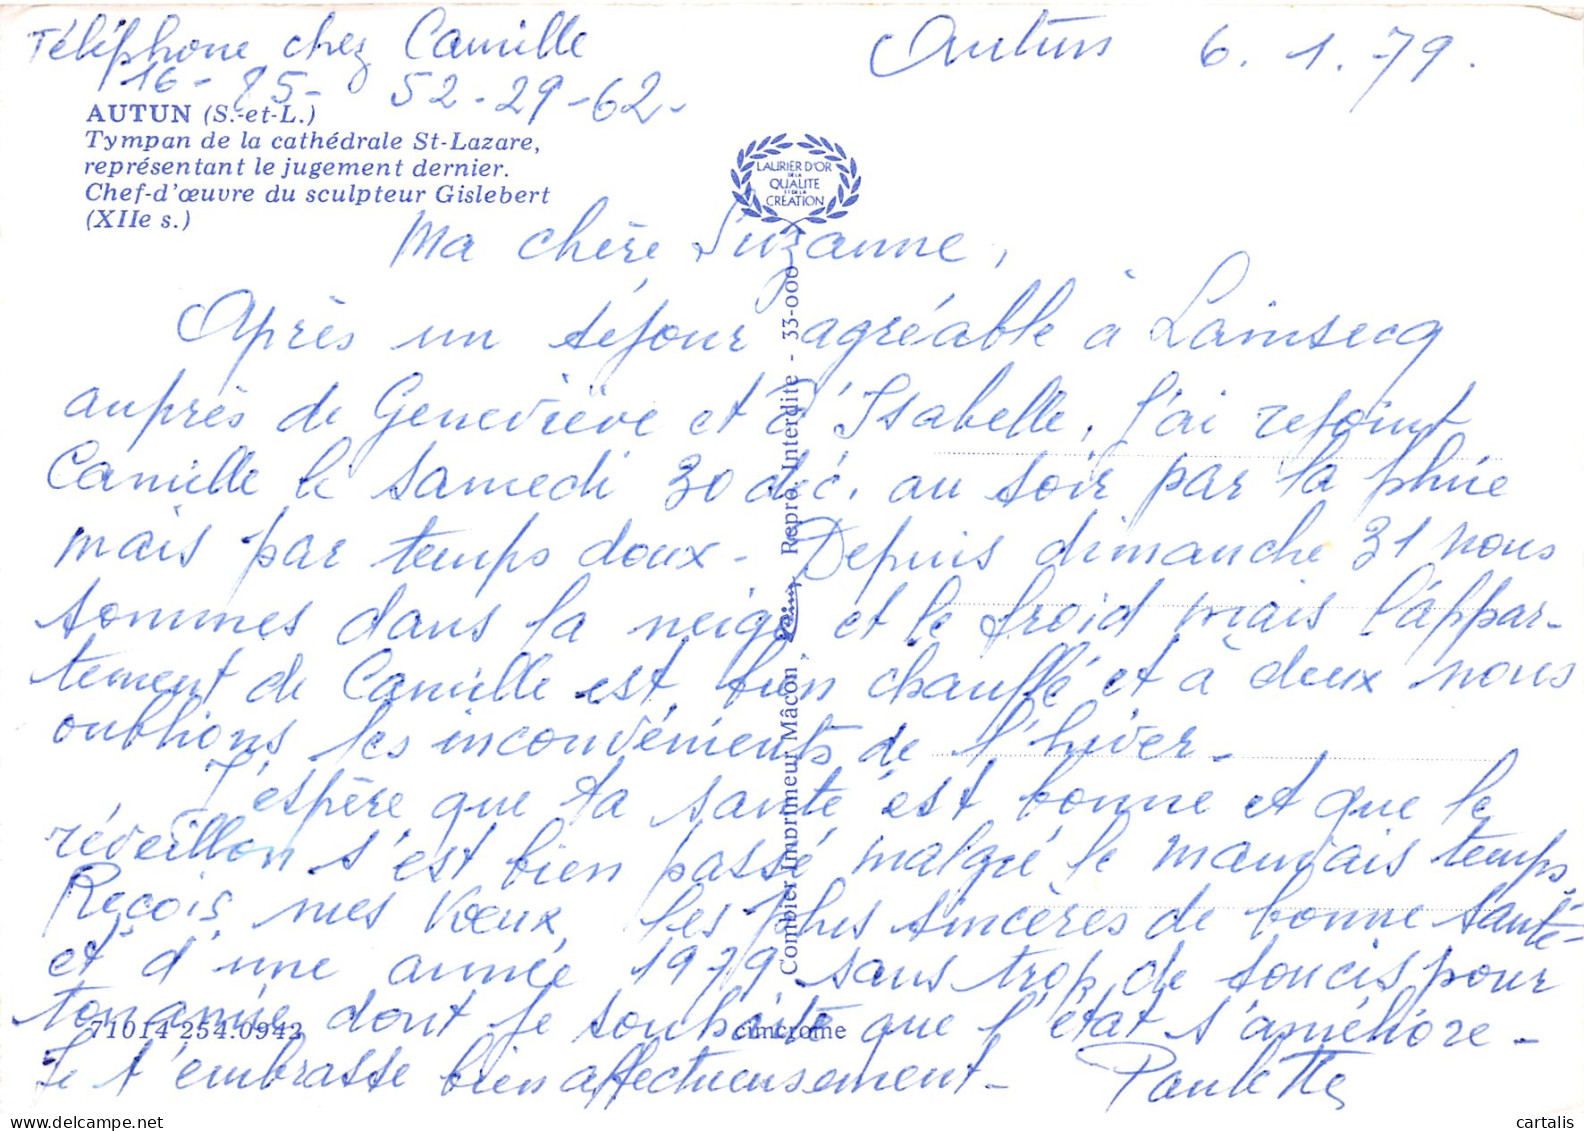 Téléphone chez Camille
Autun 6.1.79.
16-85-52-29-62-
AUTUN (S.-et-L.)
Tympan de la cathédrale St-Lazare,
représentant le jugement dernier.
Chef-d'œuvre du sculpteur Gislebert
(XIIe s.)
LAURIER D'OR
DE LA
QUALITE
ET DE LA
CREATION
Ma chère Suzanne,
Après un séjour agréable à Lainsecq
auprès de Geneviève et d'Isabelle, j'ai rejoint
Camille le samedi 30 déc. au soir par la pluie
mais par temps doux - Depuis dimanche 31 nous
sommes dans la neige et le froid mais l'appar-
tement de Camille est bien chauffé et à deux nous
oublions les inconvénients de l'hiver -
J'espère que ta santé est bonne et que le
réveillon s'est bien passé malgré le mauvais temps.
Reçois mes vœux les plus sincères de bonne santé
et d'une année 1979 sans trop de soucis pour
ton amie dont je souhaite que l'état s'améliore -
Je t'embrasse bien affectueusement - Paulette
Combier Imprimeur Mâcon
Repro. Interdite - 33-000
71014 254.0942
cimcrome
cartalis